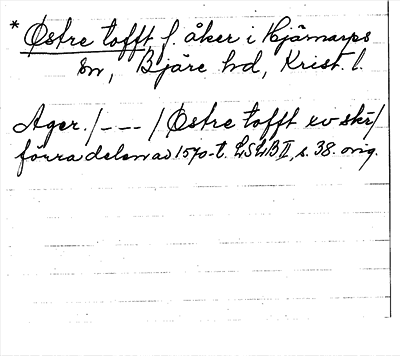 * Østre tofft, f. åker i Hjärnarps
sn, Bjäre hd, Krist. l.
Ager. /--- / Østre tofft xv skr/
förra delen av 1570-t. LSLB II, s. 38. orig.